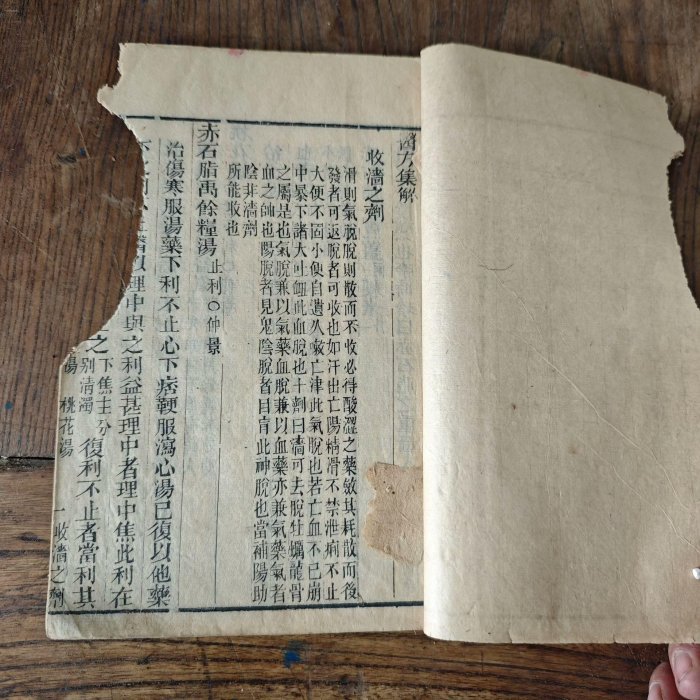 醫方集解
收濇之劑
滑則氣脫脫則散而不收必得酸澀之藥斂其耗散而後
發者可返脫者可收也如汗出亡陽精滑不禁泄痢不止
大便不固小便自遺久嗽亡津此氣脫也若亡血不已崩
中暴下諸大吐衄此血脫也十劑曰濇可去脫牡蠣龍骨
之屬是也氣脫兼以氣藥血脫兼以血藥亦兼氣藥氣者
血之帥也陽脫者見鬼陰脫者目盲此神脫也當補陽助
陰非濇劑
所能收也
赤石脂禹餘糧湯 止利○仲景
治傷寒服湯藥下利不止心下痞鞕服瀉心湯已復以他藥
下之利不止醫以理中與之利益甚理中者理中焦此利在
之下焦主分別清濁復利不止者當利其
湯 桃花湯 一 收濇之劑